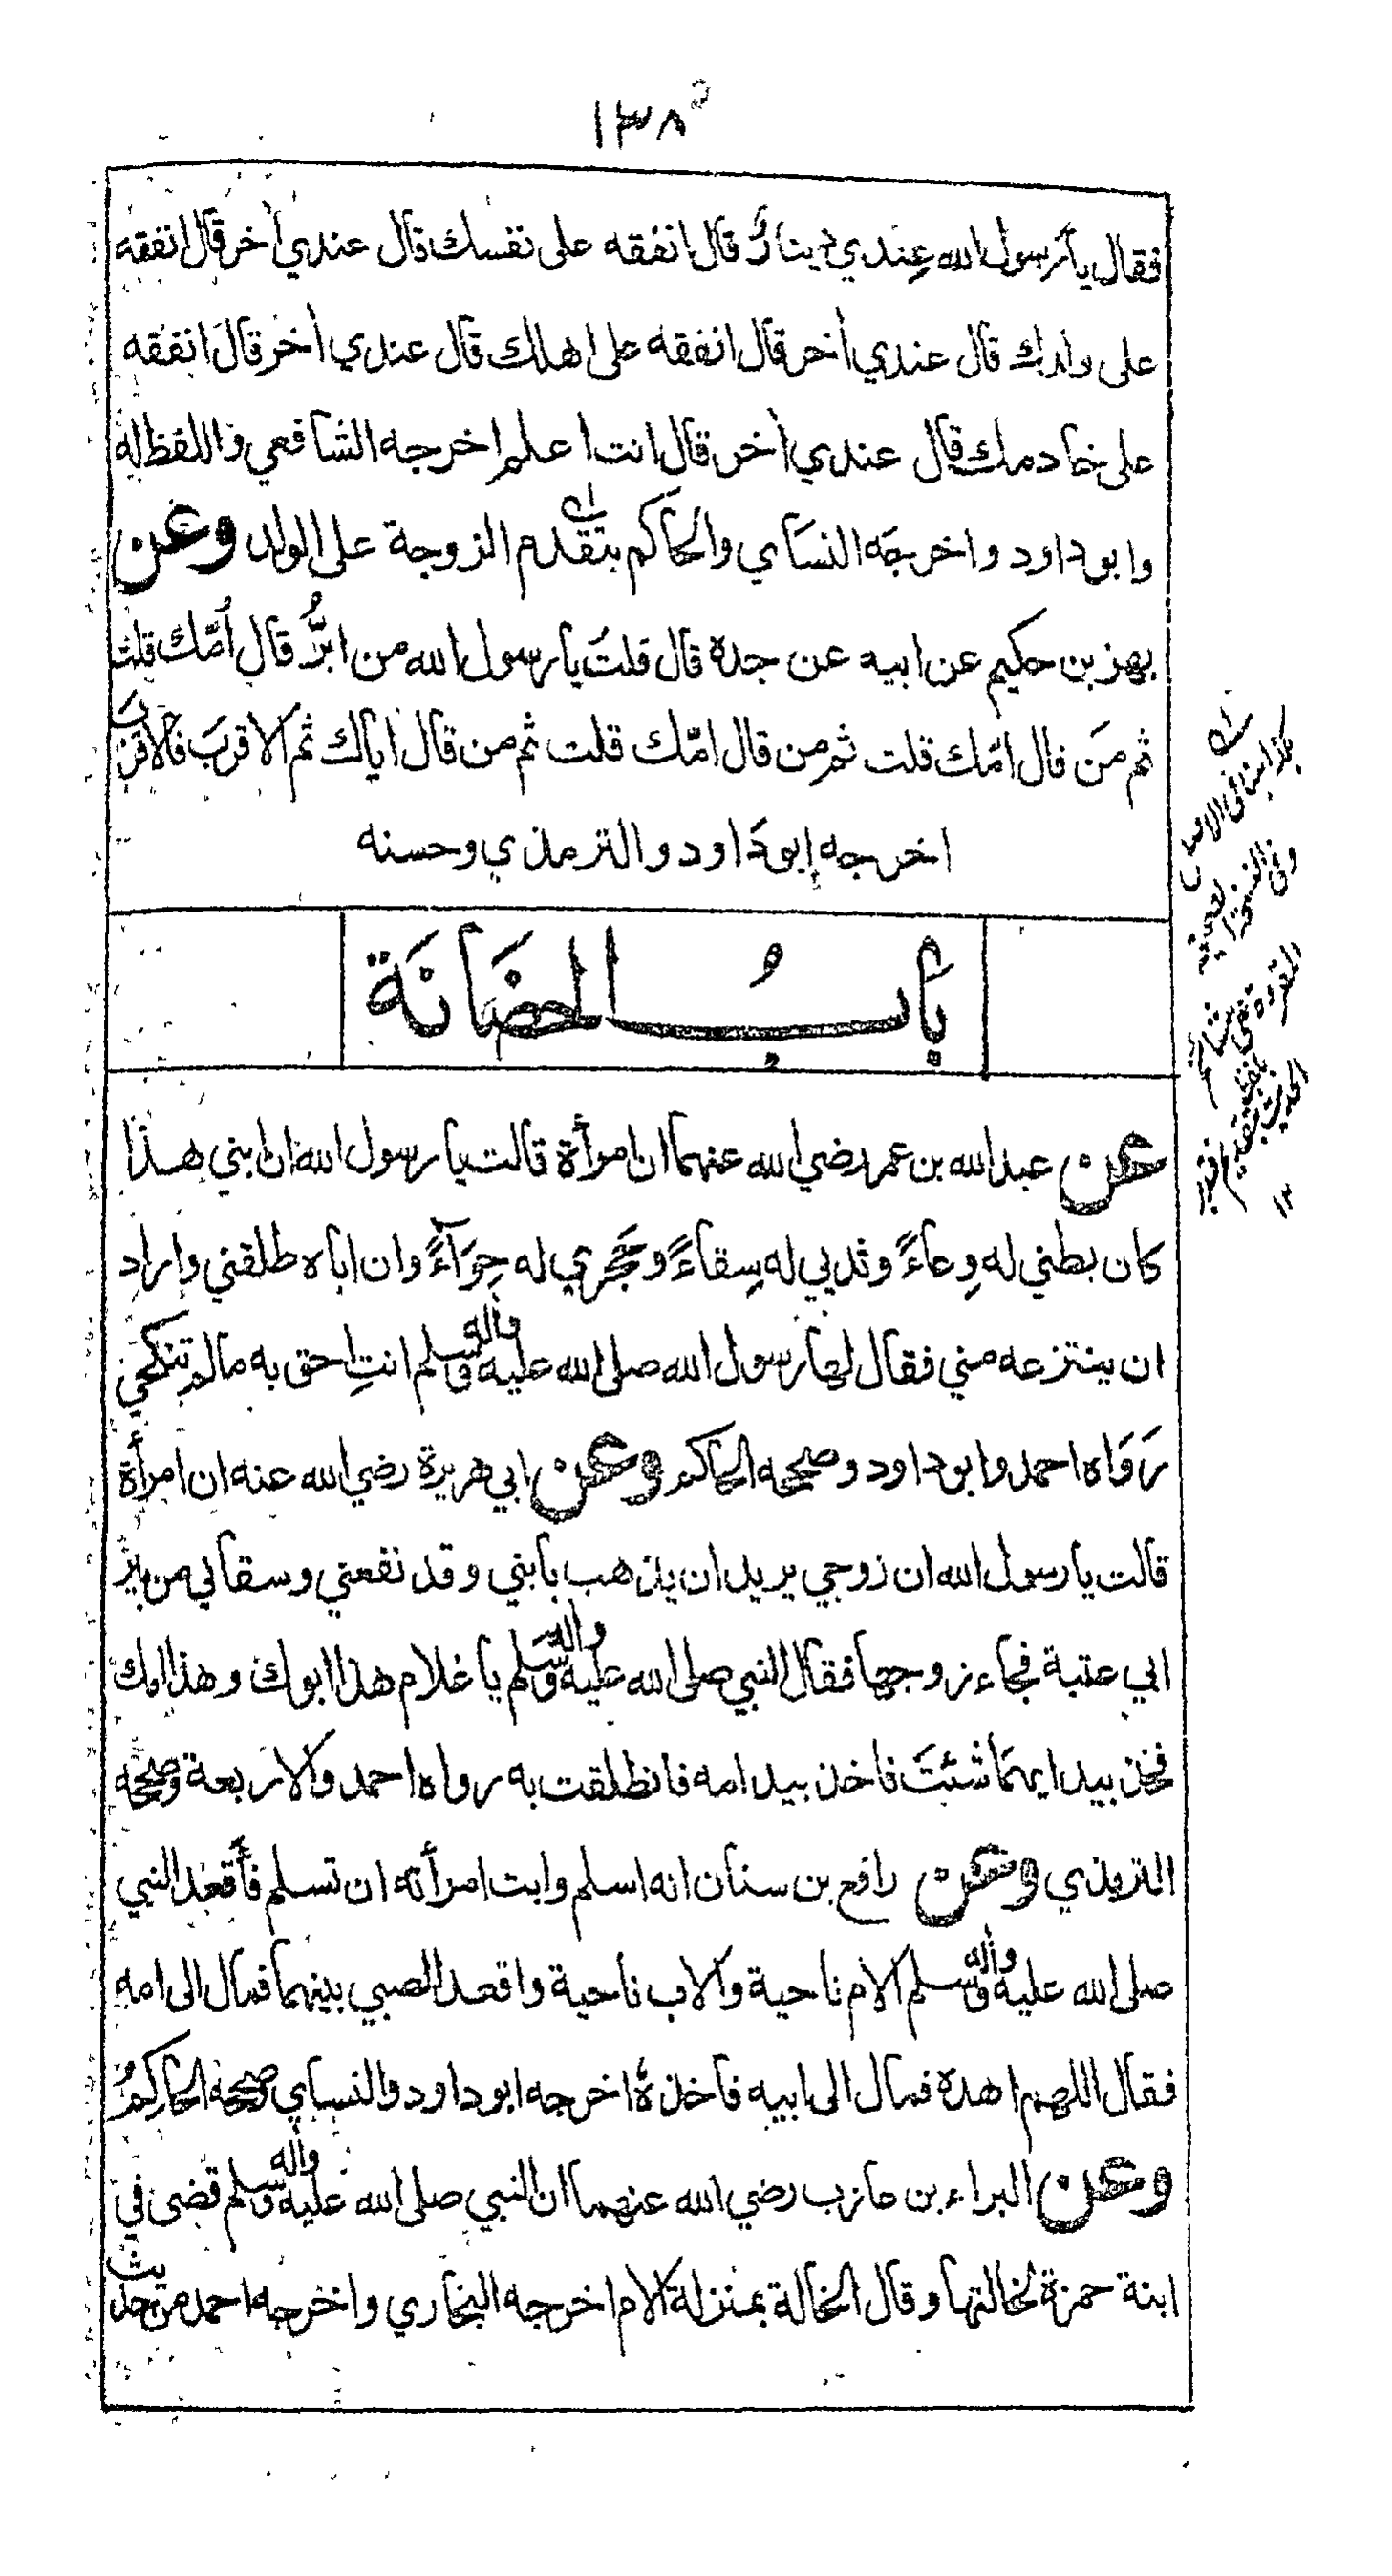 ١٣٨
فقال يا رسول الله عِندي دينارٌ قال انفقه على نفسك قال عندي أخر قال انفقه
على ولدك قال عندي أخر قال انفقه على اهلك قال عندي أخر قال انفقه
على خادمك قال عندي أخر قال انت اعلم اخرجه الشافعي واللفظ له
وابو داود واخرجَه النسَاي والحاكم بتقدم الزوجة على الولد وعن
بهز بن حكيم عن ابيه عن جده قال قلتُ يا رسول الله من ابرُّ قال أمّك قلت
ثم منَ قال امّك قلت ثم من قال امّك قلت ثم من قال اباك ثم الاقربَ فالاقربَ
اخرجه ابو دَاود والترمذي وحسنه
بابُ الحضَانَة
عن عبد الله بن عمر رضي الله عنهما ان امرأة قالت يا رسول الله ان ابني هذا
كان بطني له وِعاءً وثديي له سِقاءً وحَجري له حِوَآءً وان اباه طلقني واراد
ان ينتزعه مني فقال لها رسول الله صلى الله عليه وأله وسلم انتِ احق به مالم تنكحي
رَوَاه احمد وابو داود وصححه الحاكم وعن ابي هريرة رضي الله عنه ان امرأة
قالت يا رسول الله ان زوجي يريد ان يذهب بابني وقد نفعني وسقاني من بئر
ابي عتبة فجاء زوجها فقال النبي صلى الله عليه واله وسَلم يا غلام هذا ابوك وهذا امك
فخذ بيد ايهمَا شئتَ فاخذ بيد امه فانطلقت به رواه احمد والاربعة وصححه
الترمذي وعن رافع بن سنان انه اسلم وابت امرأته ان تسلم فأقعَد النبي
صلى الله عليه وأله وسلم الام ناحية والاب ناحية واقعد الصبي بينهما فمال الى امه
فقال اللهم اهده فمال الى ابيه فاخذهُ اخرجه ابو داود والنساي وصححه الحاكمُ
وعن البراء بن عازب رضي الله عنهما ان النبي صلى الله عليه واله وسلم قضى في
ابنة حمزة لخالتها وقال الخالة بمنزلة الام اخرجه البخاري واخرجه احمد من حديث
في الاصل
وفي النسخة
الحديث بتقديم
١٢